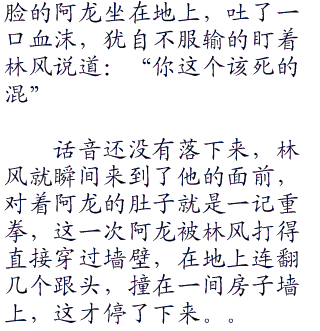 脸的阿龙坐在地上，吐了一
口血沫，犹自不服输的盯着
林风说道：“你这个该死的
混”
话音还没有落下来，林
风就瞬间来到了他的面前，
对着阿龙的肚子就是一记重
拳，这一次阿龙被林风打得
直接穿过墙壁，在地上连翻
几个跟头，撞在一间房子墙
上，这才停了下来。。